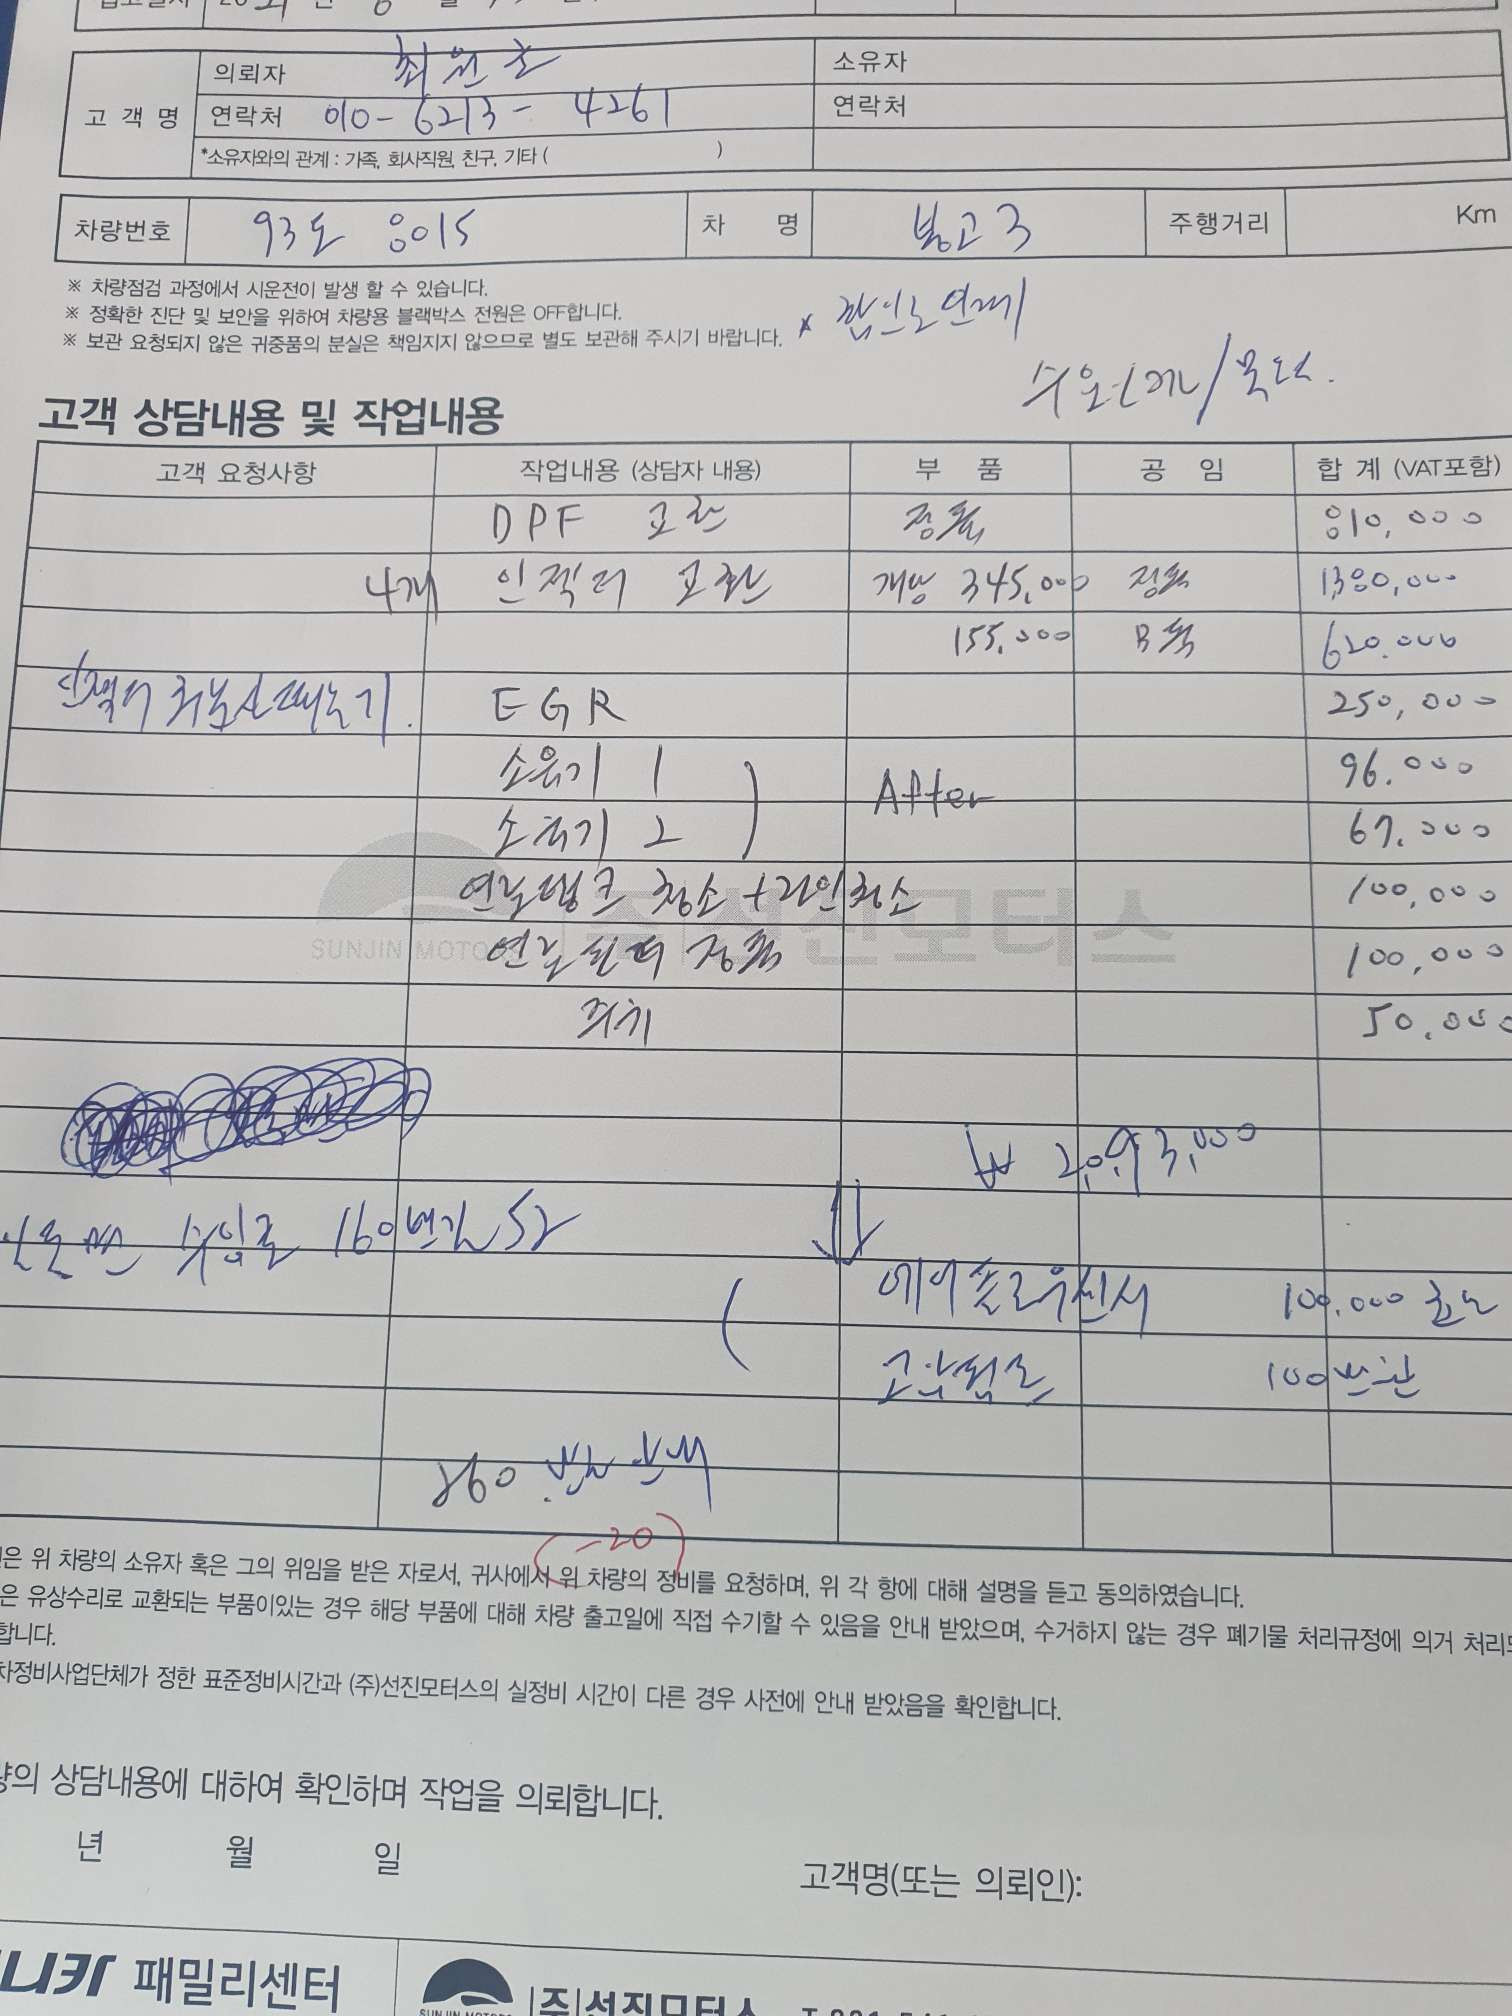 의뢰자 최원준 소유자
고 객 명 연락처 010-6213-4261 연락처
*소유자와의 관계 : 가족, 회사직원, 친구, 기타 ( )
차량번호 93도 8015 차 명 봉고3 주행거리 Km
※ 차량점검 과정에서 시운전이 발생 할 수 있습니다.
※ 정확한 진단 및 보안을 위하여 차량용 블랙박스 전원은 OFF합니다.
※ 보관 요청되지 않은 귀중품의 분실은 책임지지 않으므로 별도 보관해 주시기 바랍니다.
고객 상담내용 및 작업내용
고객 요청사항 작업내용 (상담자 내용) 부 품 공 임 합 계 (VAT포함)
DPF 교환 정품 810,000
4개 인젝터 교환 개당 345,000 정품 1,380,000
155,000 B품 620.000
EGR 250,000
소음기 1 After 96.000
소음기 2 67.000
연료탱크 청소 + 라인청소 100,000
SUNJIN MOTORS (주)선진모터스
연료필터 정품 100,000
50.000
₩ 2,093,000
수임로 160번길 52
에이솔루션서 100,000
고압펌프 100
260
-20
은 위 차량의 소유자 혹은 그의 위임을 받은 자로서, 귀사에서 위 차량의 정비를 요청하며, 위 각 항에 대해 설명을 듣고 동의하였습니다.
은 유상수리로 교환되는 부품이있는 경우 해당 부품에 대해 차량 출고일에 직접 수기할 수 있음을 안내 받았으며, 수거하지 않는 경우 폐기물 처리규정에 의거 처리
합니다.
차정비사업단체가 정한 표준정비시간과 (주)선진모터스의 실정비 시간이 다른 경우 사전에 안내 받았음을 확인합니다.
량의 상담내용에 대하여 확인하며 작업을 의뢰합니다.
년 월 일
고객명(또는 의뢰인):
니카 패밀리센터
SUNJIN MOTORS (주)선진모터스